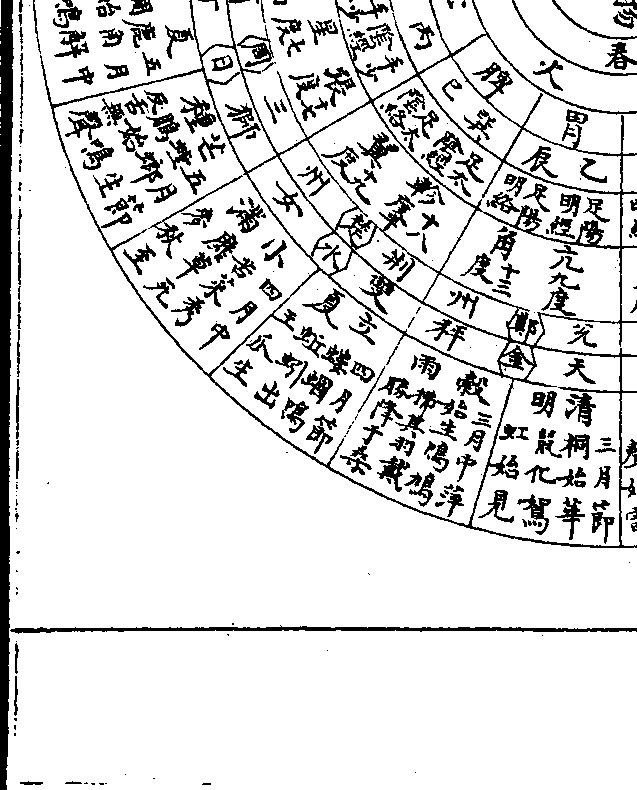 春
火
脾
胃
丙
巳
巽
辰
乙
手陰經少
足太陰經
足太陰絡
足陽明經
足陽明絡
星七度
張十七度
翼十九度
軫十八度
角十三度
亢九度
三
州
荆
州
兖
周
楚
鄭
獅
女
雙
秤
天
日
水
金
清明
三月節
桐始華
鼠化鴽
虹始見
穀雨
三月中
萍始生
鳴鳩拂其羽
戴勝降于桑
立夏
四月節
螻蟈鳴
蚯蚓出
王瓜生
小滿
四月中
苦菜秀
靡草死
麥秋至
芒種
五月節
螳螂生
鵙始鳴
反舌無聲
夏
五月中
鹿角解
蜩始鳴